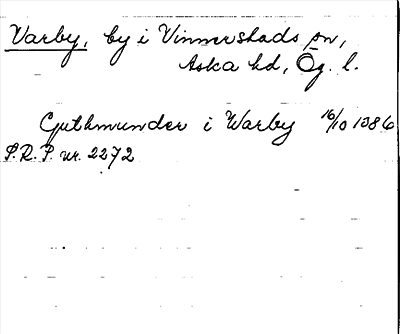 Varby, by i Vinnerstads sn,
Aska hd, Ög. l.
Guthmunder i Warby 16/10 1386
S.R.P. nr. 2272